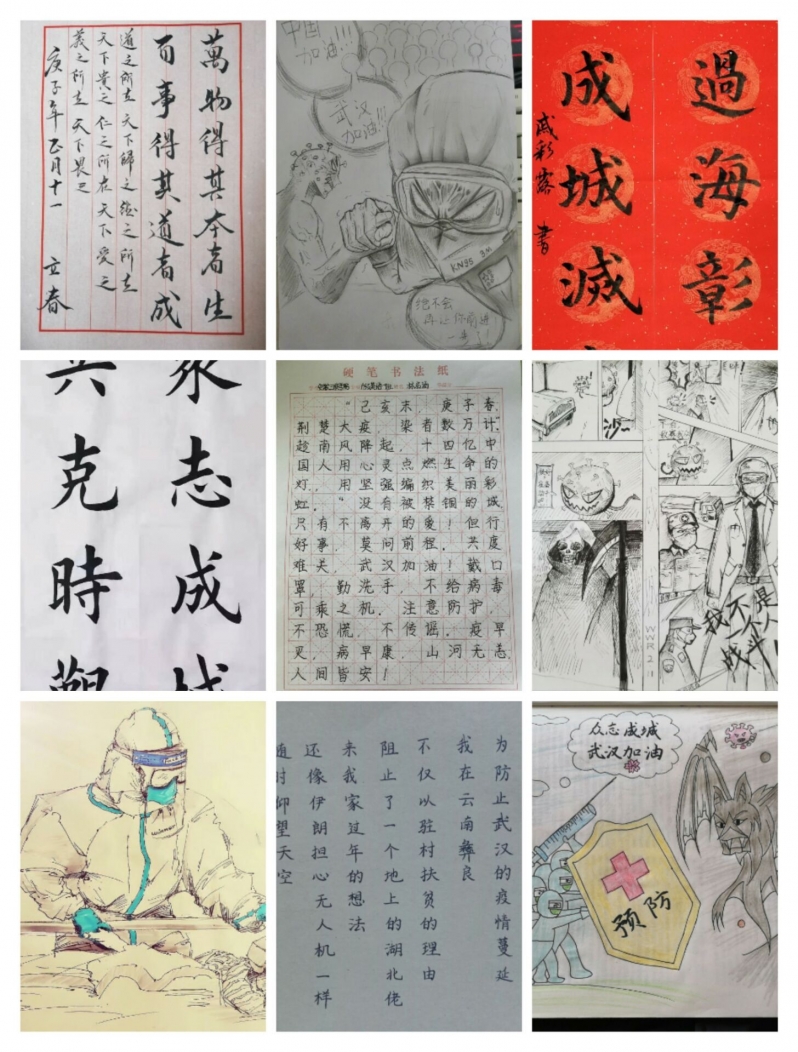 萬物得其本者生
百事得其道者成
道之所在天下歸之德之所在
天下貴之仁之所在天下愛之
義之所在天下畏之
庚子年正月十一 立春
中国
加油!!!
武汉
加油!!!
KN95 3M
绝不会
再让你前进
一步!
過海彰
成城滅
戚彩露 書
志成
克時
硬笔书法纸
"己亥末,庚子春,
荆楚大疫,染者数万计."
趁南风降起,十四亿中
国人用心灵点燃生命的
灯,用坚强编织美丽的彩
虹。"没有被禁锢的城,
只有不离开的爱!但行
好事,莫问前程。共度
难关,武汉加油!戴口
罩,勤洗手,不给病毒
可乘之机,注意防护,
不恐慌,不传谣。疫早
灭,病早康,山河无恙,
人间皆安!
沙~
我不是
一个人
战斗!
为防止武汉的疫情蔓延
我在云南彝良
不仅以驻村扶贫的理由
阻止了一个地上的湖北佬
来我家过年的想法
还像伊朗担心无人机一样
随时仰望天空
众志成城
武汉加油
预防